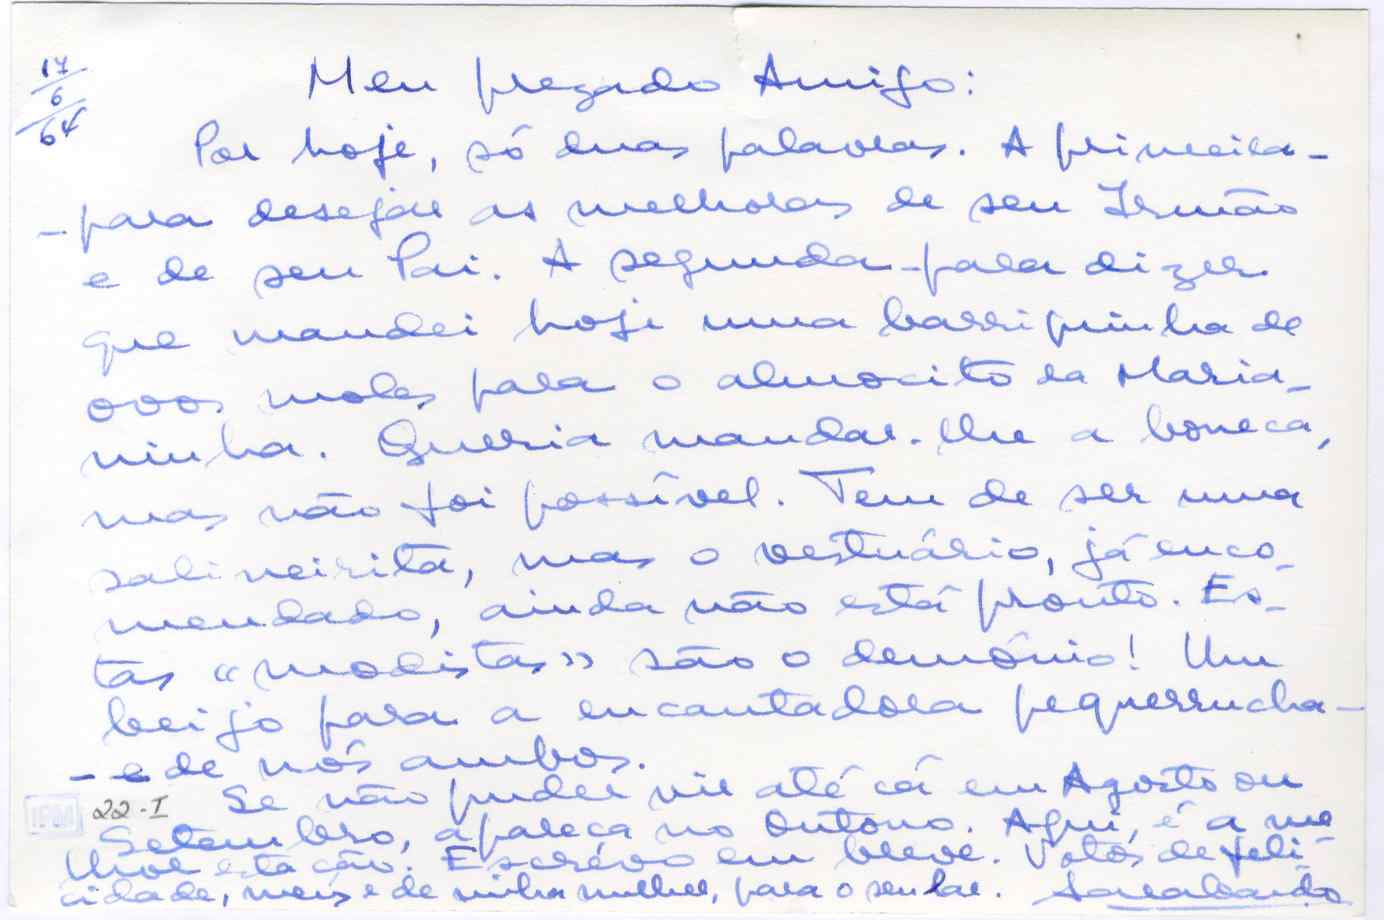 17
6
64
Meu prezado Amigo:
Por hoje, só duas palavras. A primeira -
- para desejar as melhoras de seu Irmão
e de seu Pai. A segunda - para dizer
que mandei hoje uma barriquinha de
ovos moles para o almocito da Maria-
ninha. Queria mandar-lhe a boneca,
mas não foi possível. Tem de ser uma
salineirita, mas o vestuário, já enco-
mendado, ainda não está pronto. Es-
tas «modistas» são o demónio! Um
beijo para a encantadora pequerrucha -
- e de nós ambos.
Se não puder vir até cá em Agosto ou
Setembro, apareça no Outono. Aqui, é a me-
lhor estação. Escrevo em breve. Votos de feli-
cidade, meus e de minha mulher, para o seu lar.
22-I